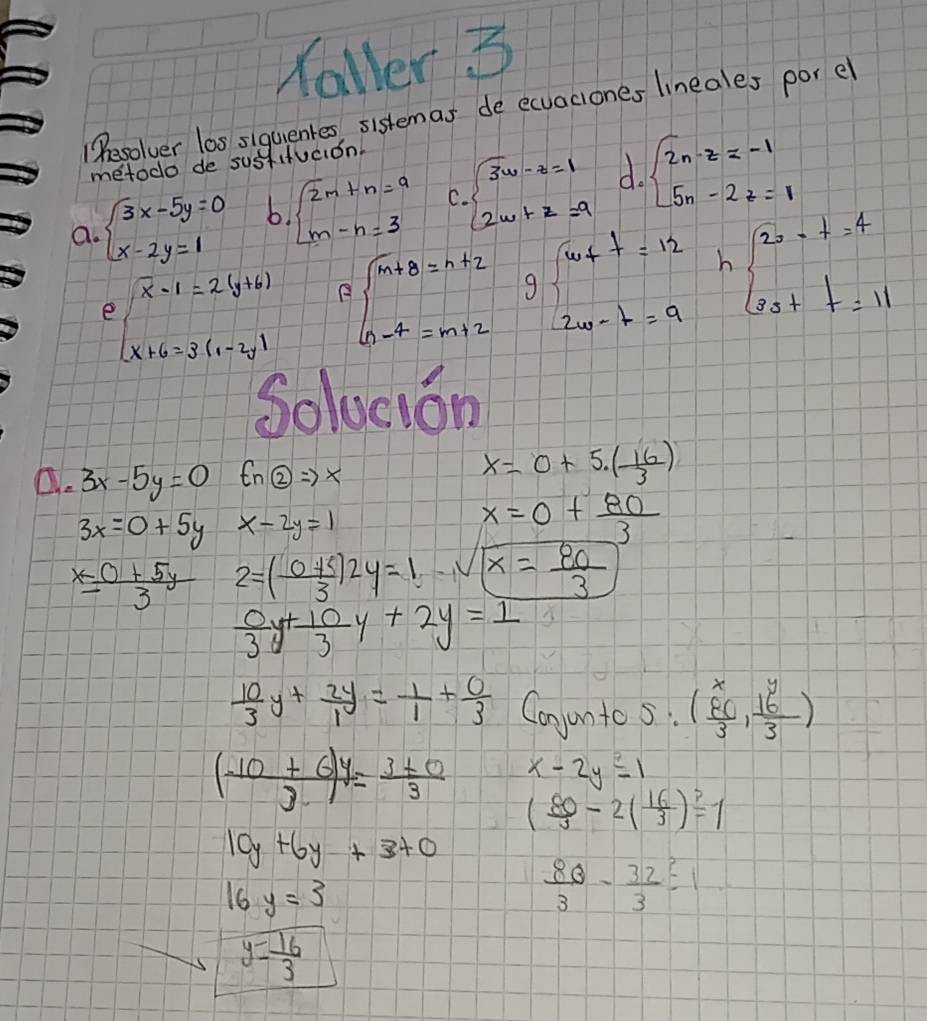 Taller 3
1 Resolver los siguientes sistemas de ecuaciones lineales por el
método de sustitución.
a. { 3x - 5y = 0
x - 2y = 1
b. { 2m + n = 9
m - n = 3
c. { 3w - z = 1
2w + z = 9
d. { 2n - z = -1
5n - 2z = 1
e { x - 1 = 2(y+6)
x + 6 = 3(1 - 2y)
{ m + 8 = n + 2
n - 4 = m + 2
g { w + t = 12
2w - t = 9
h { 2s - t = 4
3s + t = 11
Solución
a. 3x - 5y = 0
3x = 0 + 5y
x = 0 + 5y / 3
En ② => x
x - 2y = 1
2 = (0 + 5 / 3) 2y = 1
0/3 y + 10/3 y + 2y = 1
10/3 y + 2y/1 = 1/1 + 0/3
(-10 + 6 / 3) y = 3 + 0 / 3
10y + 6y + 3 + 0
16y = 3
y = 16/3
x = 0 + 5.(16/3)
x = 0 + 80/3
√ x = 80/3
Conjunto S: (80/3, 16/3)
x y
x - 2y ≟ 1
(80/3 - 2(16/3) ≟ 1
80/3 - 32/3 ≟ 1